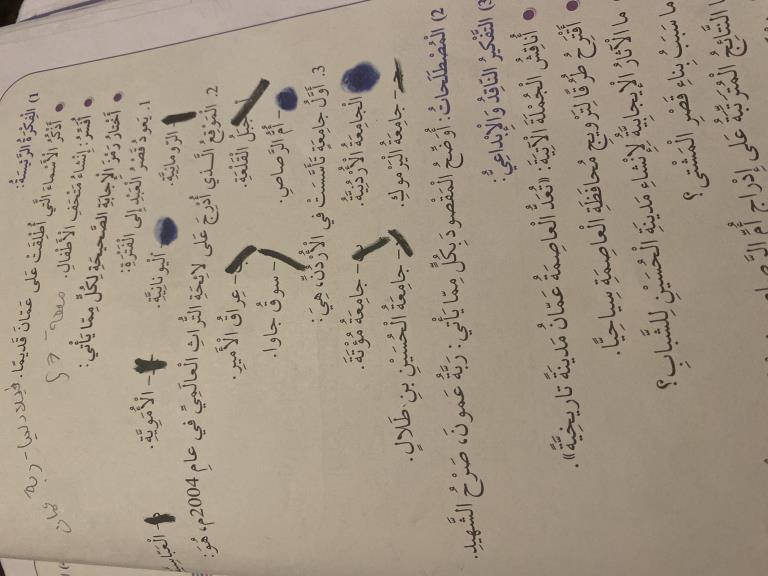 1) الْفِكْرَةُ الرَّئِيسَةُ:
أَذْكُرُ الْأَسْمَاءَ الَّتِي أُطْلِقَتْ عَلَى عَمَّانَ قَدِيمًا. فيلادلفيا - ربة عمان
أُفَسِّرُ: إِنْشَاءُ مُتْحَفِ الْأَطْفَالِ.
أَخْتَارُ رَمْزَ الْإِجَابَةِ الصَّحِيحَةِ لِكُلٍّ مِمَّا يَأْتِي:
1. يَعُودُ قَصْرُ الْعَبْدِ إِلَى الْفَتْرَةِ:
الرُّومَانِيَّةِ. الْيُونَانِيَّةِ. - الْأُمَوِيَّةِ.
2. الْمَوْقِعُ الَّذِي أُدْرِجَ عَلَى لَائِحَةِ التُّرَاثِ الْعَالَمِيِّ فِي عَامِ 2004م، هُوَ:
جَبَلُ الْقَلْعَةِ. - عِرَاقُ الْأَمِيرِ.
أُمُّ الرَّصَاصِ. - سُوقُ جَاوا.
3. أَوَّلُ جَامِعَةٍ تَأَسَّسَتْ فِي الْأُرْدُنِّ، هِيَ:
الْجَامِعَةُ الْأُرْدُنِّيَّةُ. - جَامِعَةُ مُؤْتَةَ.
- جَامِعَةُ الْيَرْموكِ. - جَامِعَةُ الْحُسَيْنِ بنِ طَلَالٍ.
2) الْمُصْطَلَحَاتُ: أُوَضِّحُ الْمَقْصُودَ بِكُلٍّ مِمَّا يَأْتِي: رَبَّةُ عَمُّونَ، صَرْحُ الشَّهِيدِ.
3) التَّفْكِيرُ النَّاقِدُ وَالْإِبْدَاعِيُّ:
أُنَاقِشُ الْجُمْلَةَ الْآتِيَةَ: «تُعَدُّ الْعَاصِمَةُ عَمَّانُ مَدِينَةً تَارِيخِيَّةً».
أَقْتَرِحُ طُرُقًا لِتَرْوِيجِ مُحَافَظَةِ الْعَاصِمَةِ سِيَاحِيًّا.
مَا الْآثَارُ الْإِيجَابِيَّةُ لِإِنْشَاءِ مَدِينَةِ الْحُسَيْنِ لِلشَّبَابِ؟
مَا سَبَبُ بِنَاءِ قَصْرِ الْمُشَتَّى؟
النَّتَائِجُ الْمُتَرَتِّبَةُ عَلَى إِدْرَاجِ أُمِّ الرَّصَاصِ